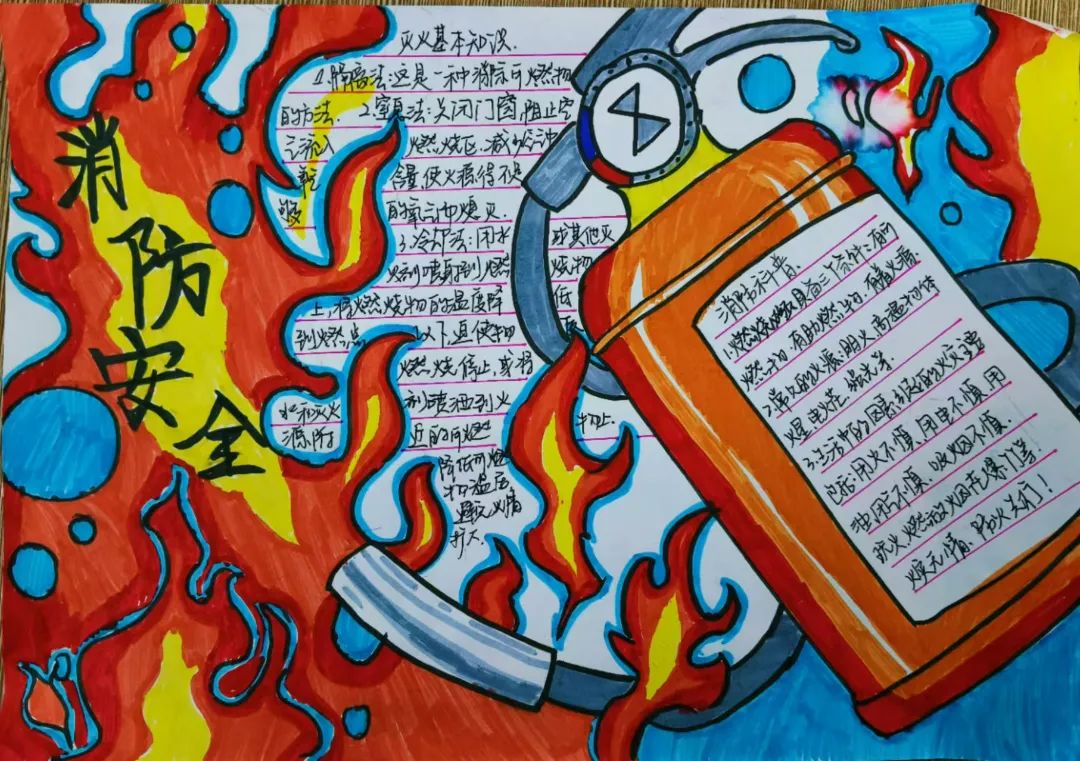 消防安全
灭火基本知识.
1.隔离法:这是一种消除可燃物
的方法. 2.窒息法:关闭门窗,阻止空
气流入 燃烧区,减少空气中
氧 含量,使火源得不到
够 的氧气而熄灭.
3.冷却法:用水 或其他灭
火剂喷射到燃 烧物
上,将燃烧物的温度降 低
到燃点 以下,迫使物
燃烧停止,或将
水和灭火 剂喷洒到火
源附 近的可燃 物上.
降低可燃
物温度
避免火情
扩大.
消防科普
1.燃烧必须具备三个条件:有可
燃物,有助燃物,有着火源.
2.常见的火源:明火,高温物体
火星,电火花,强光等.
3.生活中的因素引起的火灾
用火不慎,用电不慎,用
油用气不慎,吸烟不慎.
玩火,燃放烟花爆竹等!
火灾无情、防火先行!